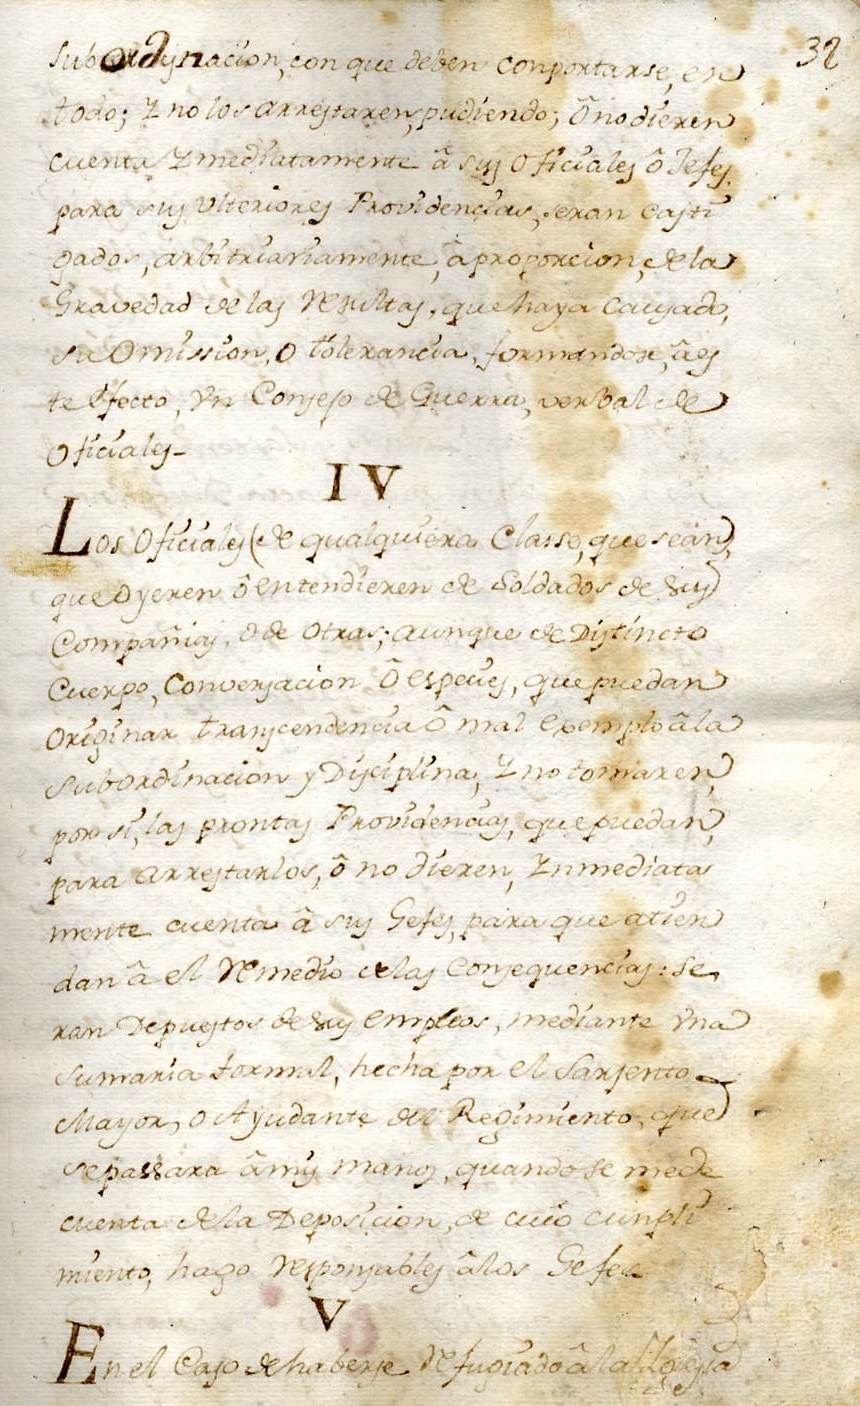 32
Subordynacion, con que deben conportarse, en
todo; Y no los arrestaren, pudiendo; ô no dieren
cuenta Ynmediatamente â sus Oficiales ô Jefes
para sus Ulteriores Providencias, seran Casti
gados, arbitrariamente, â proporcion, de la
Gravedad de las Resultas, que haya Causado,
su Omission, o tolerancia, formandose, â es
te Efecto, Vn Consejo de Guerra, verbal de
Oficiales-
IV
Los Oficiales (de qualquiera Classe, que sean)
que Oyeren ô entendieren de Soldados de sus
Compañias, o de Otras; aunque de Distincto
Cuerpo, Conversacion ô especies, que puedan
Originar transcendencia ô mal Exemplo â la
Subordinacion y Disciplina, Y no tomaren,
por sí, las prontas Providencias, que puedan,
para arrestarlos, ô no dieren, Ynmediata
mente cuenta â sus Gefes, para que atien
dan â el Remedio de las Consequencias: Se
ran Depuestos de sus empleos, mediante Vna
Sumaria formal, hecha por el Sarjento
Mayor, o Ayudante del Regimiento, que
se passara â mis manos, quando se me de
cuenta de la Deposicion, de cuio cunpli
miento, hago Responsables â los Gefes.
V
En el Caso de haberse Refugiado â la Iglesia